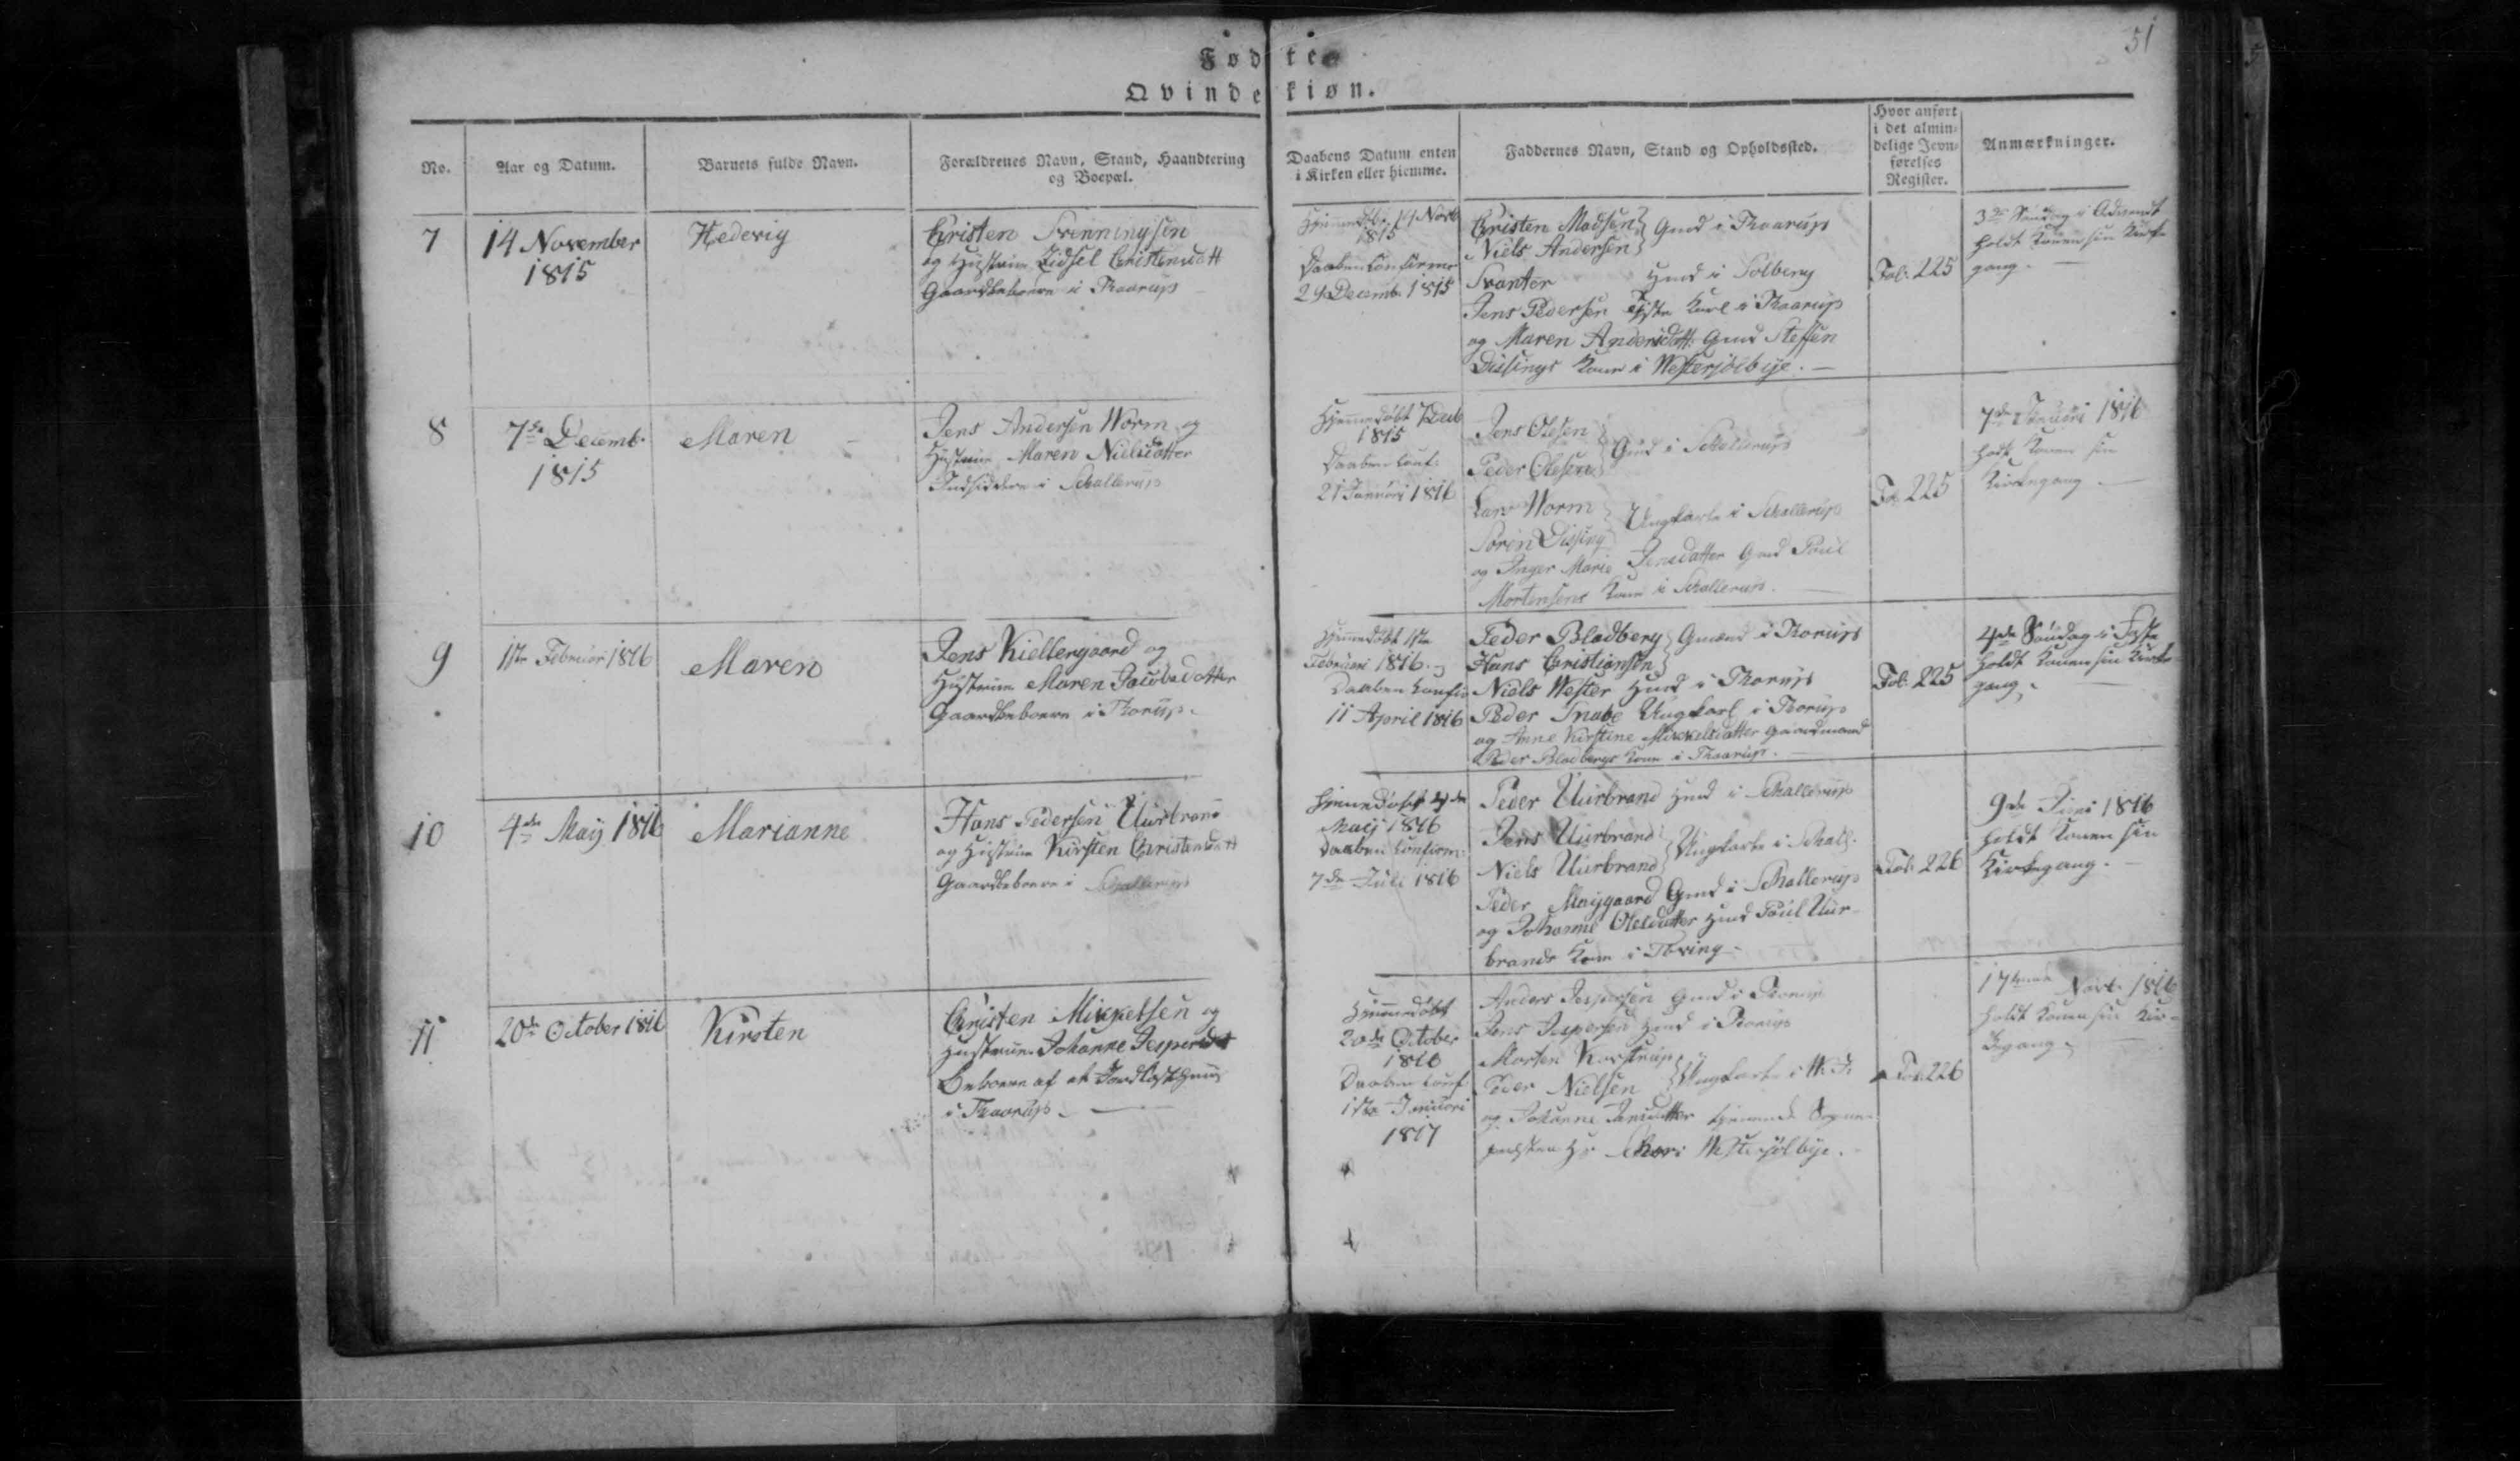 51
Fødte
Qvindekiøn.
No.
Aar og Datum.
Barnets fulde Navn.
Forældrenes Navn, Stand, Haandtering
og Boepæl.
Daabens Datum enten
i Kirken eller hiemme.
Faddernes Navn, Stand og Opholdssted.
Hvor anført
i det almin-
delige Jevn-
førelses
Register.
Anmærkninger.
7
14 November
1815
Hedevig
Christen
og Hustrue Zidsel Christensdatt
Gaardbeboere i Thaarup
14 Novb
1815
Daaben Confirme
29 Decemb. 1815
Christen Madsen
Niels Andersen
Gmd i Thaarup
Svanter Hmd i Solberg
Jens Pedersen Karl i Thaarup
og Maren Andersdatt. Gmd Steffen
Dissings Kone i Westerjølbye.
Fol: 225
3de Søndag i Advendt
holdt Konen sin Kirke
gang.
8
7de Decemb.
1815
Maren
Jens Andersen Worm og
Hustrue Maren Nielsdatter
Indsiddere i Schallerup
Hjemmedøbt 7 Decb
1815
Daaben Conf.
21 Januari 1816
Jens Olesen
Peder Olesen
Gmd i Schallerup
Lars Worm
Søren Dissing
Ungkarle i Schallerup
og Inger Marie Jensdatter Gmd Poul
Mortensens Kone i Schallerup.
Fol 225
7de Januari 1816
holdt Konen sin
Kirkegang.
9
1ste Februar 1816
Maren
Jens Kiellergaard og
Hustrue Maren Jacobsdatter
Gaardbeboere i Thorup.
Hjemmedøbt 1ste
Februari 1816. og
Daaben Confir
11 April 1816
Peder Bladberg
Hans Christiansen
Gmænd i Thorup
Niels Wester Hmd i Thorup
Peder Snabe Ungkarl i Thorup
og Anne Kirstine Mikkelsdatter Gaardmand
Peder Bladbergs Kone i Thaarup.
Fol: 225
4de Søndag i Faste
holdt Konen sin Kirke
gang.
10
4de Maij 1816
Marianne
Hans Pedersen Uurbrand
og Hustrue Kirsten Christensdatt
Gaardbeboere i Schallerup
Hjemmedøbt 4de
Maij 1816
Daaben Confirm:
7de Juli 1816
Peder Uurbrand Hmd i Schallerup
Jens Uurbrand
Niels Uurbrand
Ungkarle i Schall.
Peder Maijgaard Gmd i Schallerup
og Johanne Olesdatter Hmd Poul Uur-
brands Kone i Thving
Fol: 226
9de Juni 1816
holdt Konen sin
Kirkegang.
11
20de October 1816
Kirsten
Christen Mikkelsen og
Hustrue Johanne Jespersdt
Beboere af et Jordløst Huus
i Thaarup.
Hjemmedøbt
20de October
1816
Daaben Conf
1ste Januari
1817
Anders Jespersen Gmd i Thorup
Jens Jespersen Hmd i Thorup
Morten Korstrup
Peder Nielsen
Ungkarle i W. J.
og Johanne Jensdatter tjenende Sogne-
præsten Hr i Westerjølbye.
Fol: 226
Novb. 1816
holdt Konen sin Kir-
kegang.